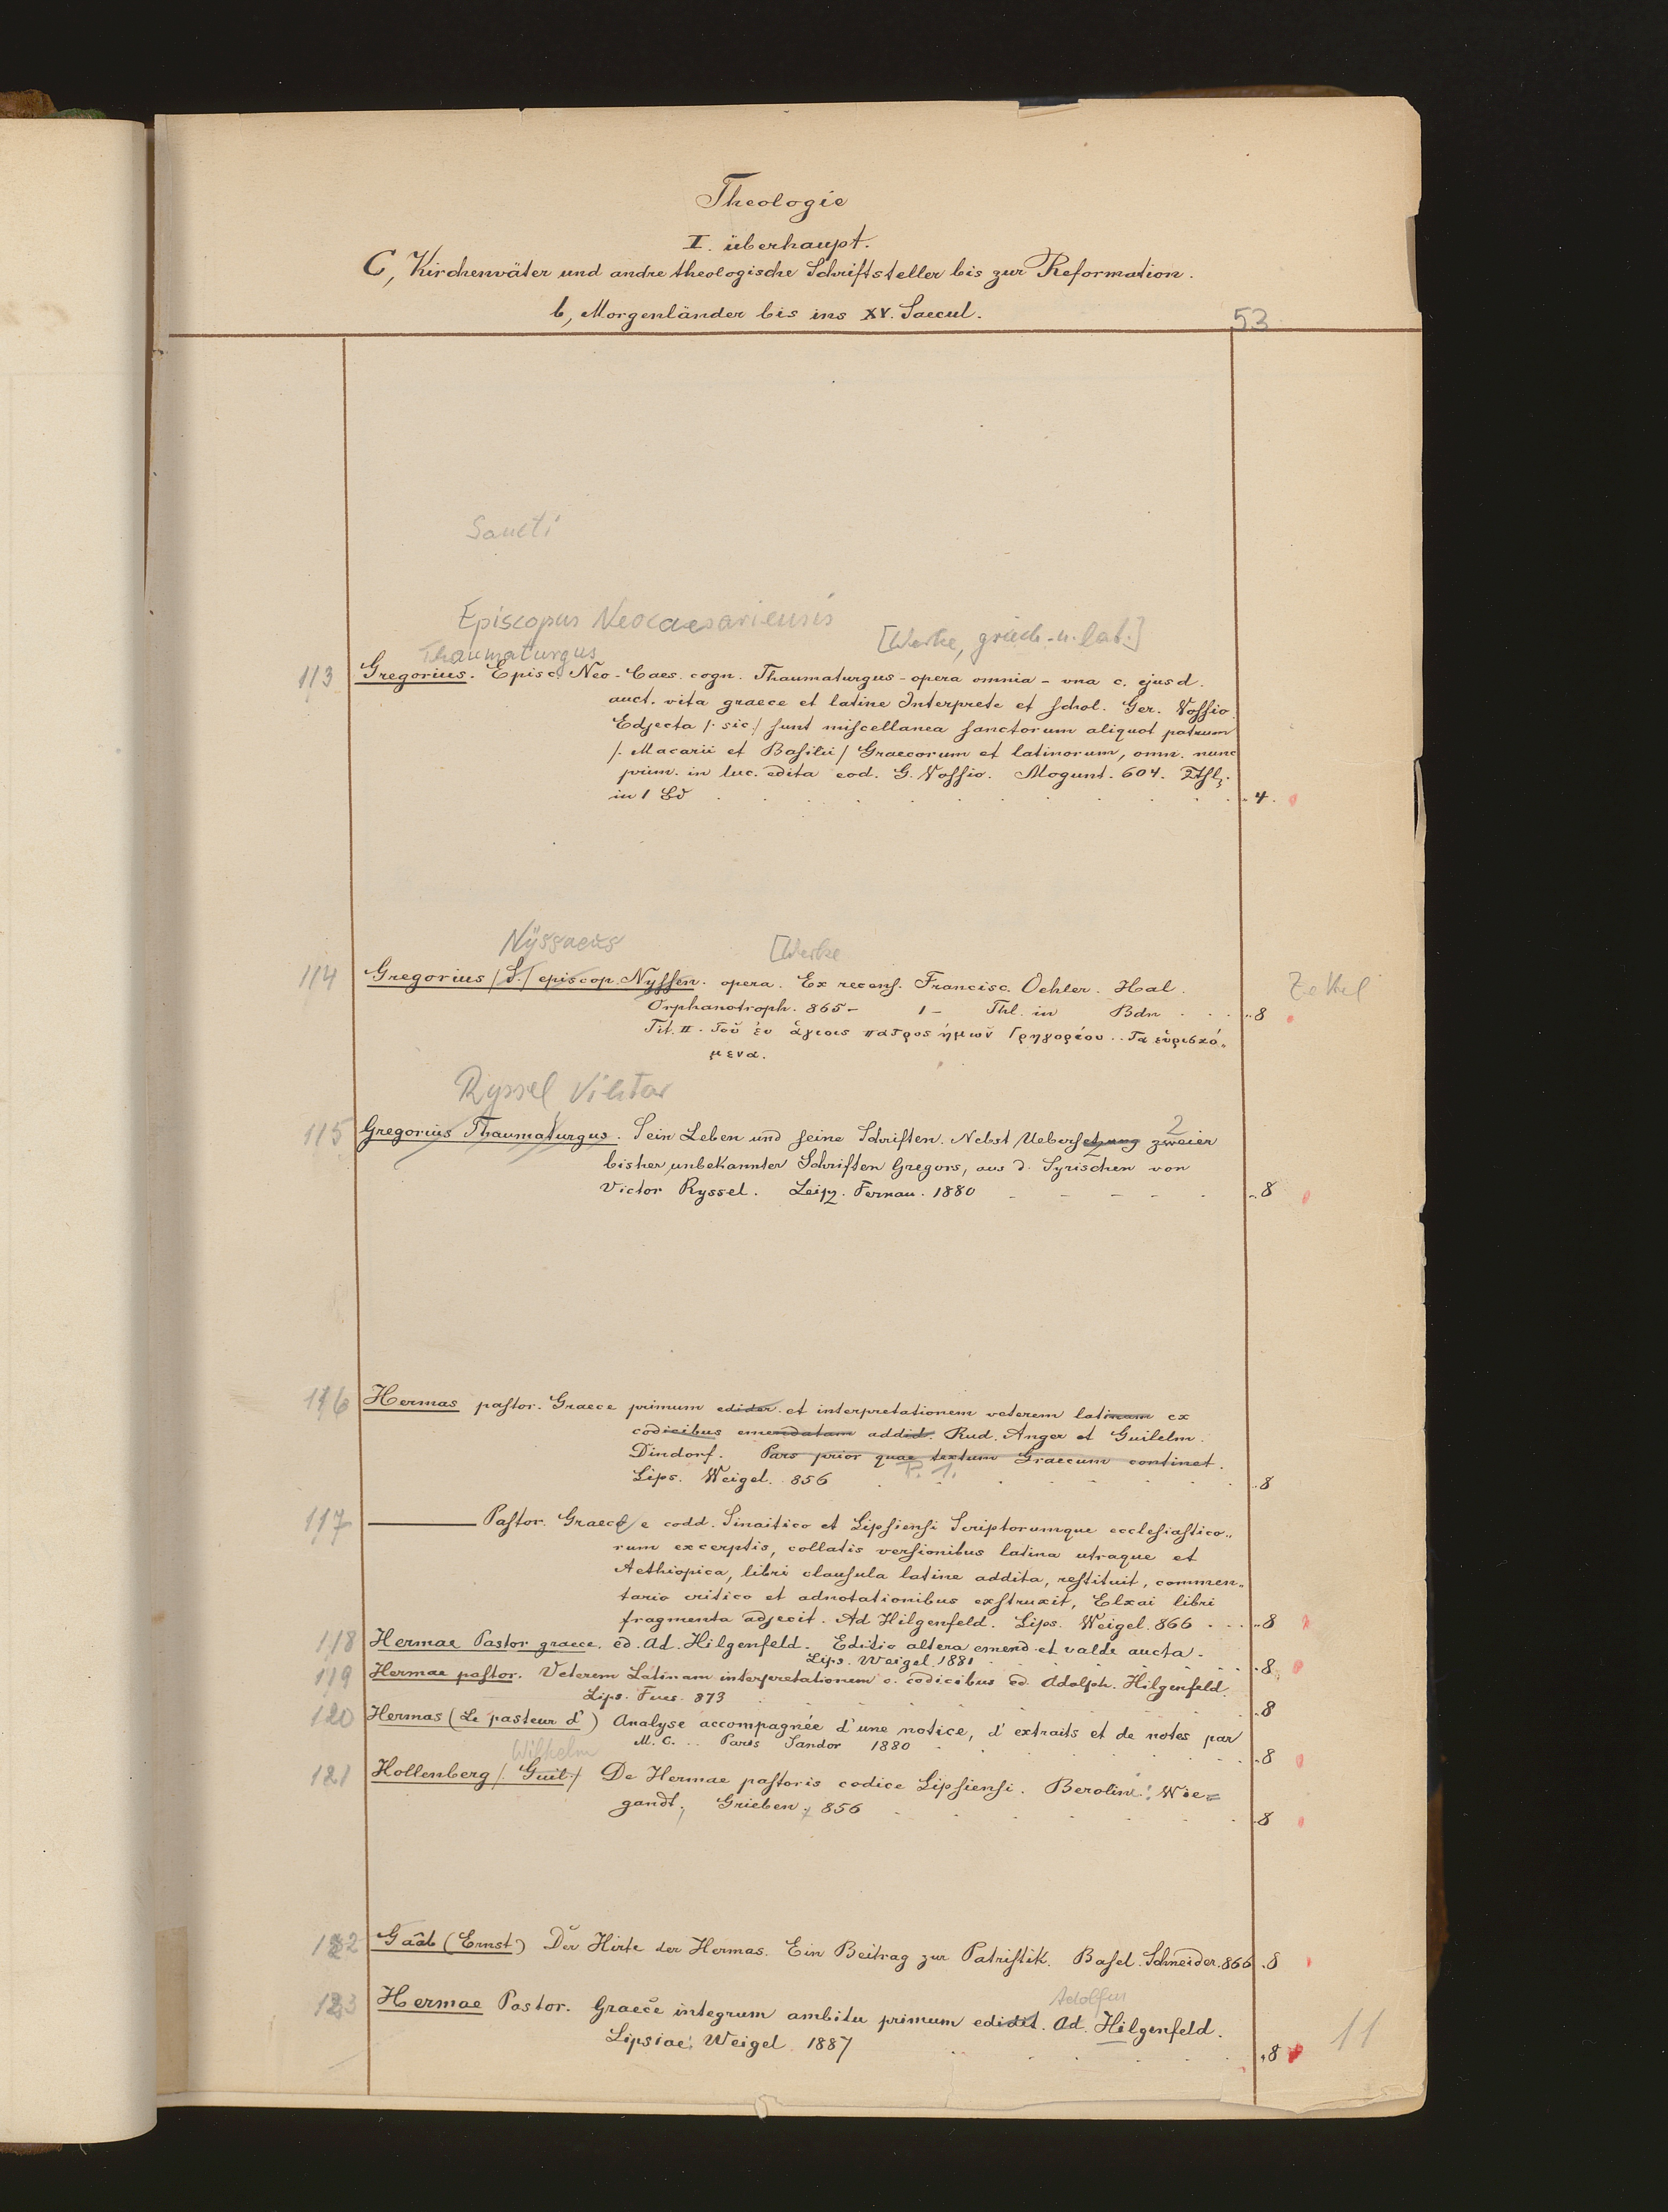 Theologie
I. überhaupt.
C, Kirchenväter und andre theologische Schriftsteller bis zur Reformation.
b, Morgenländer bis ins XV. Saecul.
53
Sancti
Episcopus Neocaesariensis
[Werke, griech. u. lat.]
Thaumaturgus
113 Gregorius. Episc. Neo-Caes. cogn. Thaumaturgus - opera omnia - una c. ejusd.
auct. vita graece et latine Interprete et schol. Ger. Vossio.
Edjecta /: sic :/ sunt miscellanea sanctorum aliquot patrum
/. Macarii et Basilii / Graecorum et latinorum, omn. nunc
prim. in luc. edita eod. G. Vossio. Mogunt. 604. 2 Thl.
in 1 Bd . . . . . . . . . . 4.
Nyssaeus [Werke
114 Gregorius /S./ episcop. Nyssen. opera. Ex recens. Francisc. Oehler. Hal. Zettel
Orphanotroph. 865- 1- Thl. in Bdn . . . 8
Tit. II. Τοῦ ἐν ἁγίοις πατρος ἡμῶν Γρηγορίου .. Τα εὑρισκό„
μενα.
Ryssel, Viktor
115 Gregorius Thaumaturgus. Sein Leben und seine Schriften. Nebst Uebersetzung zweier 2
bisher unbekannter Schriften Gregors, aus d. Syrischen von
Victor Ryssel. Leipz. Fernau. 1880 - - - - . 8
116 Hermas pastor. Graece primum edider. et interpretationem veterem latinam ex
codicibus emendatam addid. Rud. Anger et Guilelm.
Dindorf. Pars prior quae textum Graecum continet.
P. 1.
Lips. Weigel. 856 . . . . . . 8
117 ——— Pastor. Graece e codd. Sinaitico et Lipsiensi Scriptorumque ecclesiastico„
rum excerptis, collatis versionibus latina utraque et
Aethiopica, libri clausula latine addita, restituit, commen„
tario critico et adnotationibus exstruxit, Elxai libri
fragmenta adjecit. Ad Hilgenfeld. Lips. Weigel. 866 . . . 8
118 Hermae Pastor graece. ed. Ad. Hilgenfeld. Editio altera emend. et valde aucta.
Lips. Weigel. 1881 . . . . . . 8
119 Hermae pastor. Veterem Latinam interpretationem e. codicibus ed. Adolph. Hilgenfeld.
Lips. Fues. 873 . . . . . . 8
120 Hermas (Le pasteur d') Analyse accompagnée d'une notice, d'extraits et de notes par
M. C. .. Paris Sandor 1880 . . . . . . 8
Wilhelm
121 Hollenberg /. Guil./ De Hermae pastoris codice Lipsiensi. Berolini: Wie=
gandt, Grieben, 856 . . . . . . 8
122 Gaâb (Ernst) Der Hirte der Hermas. Ein Beitrag zur Patristik. Basel. Schneider. 866 . 8
Adolfus
123 Hermae Pastor. Graece integrum ambitu primum edidit. Ad. Hilgenfeld.
Lipsiae: Weigel 1887 . . . . . 8
11